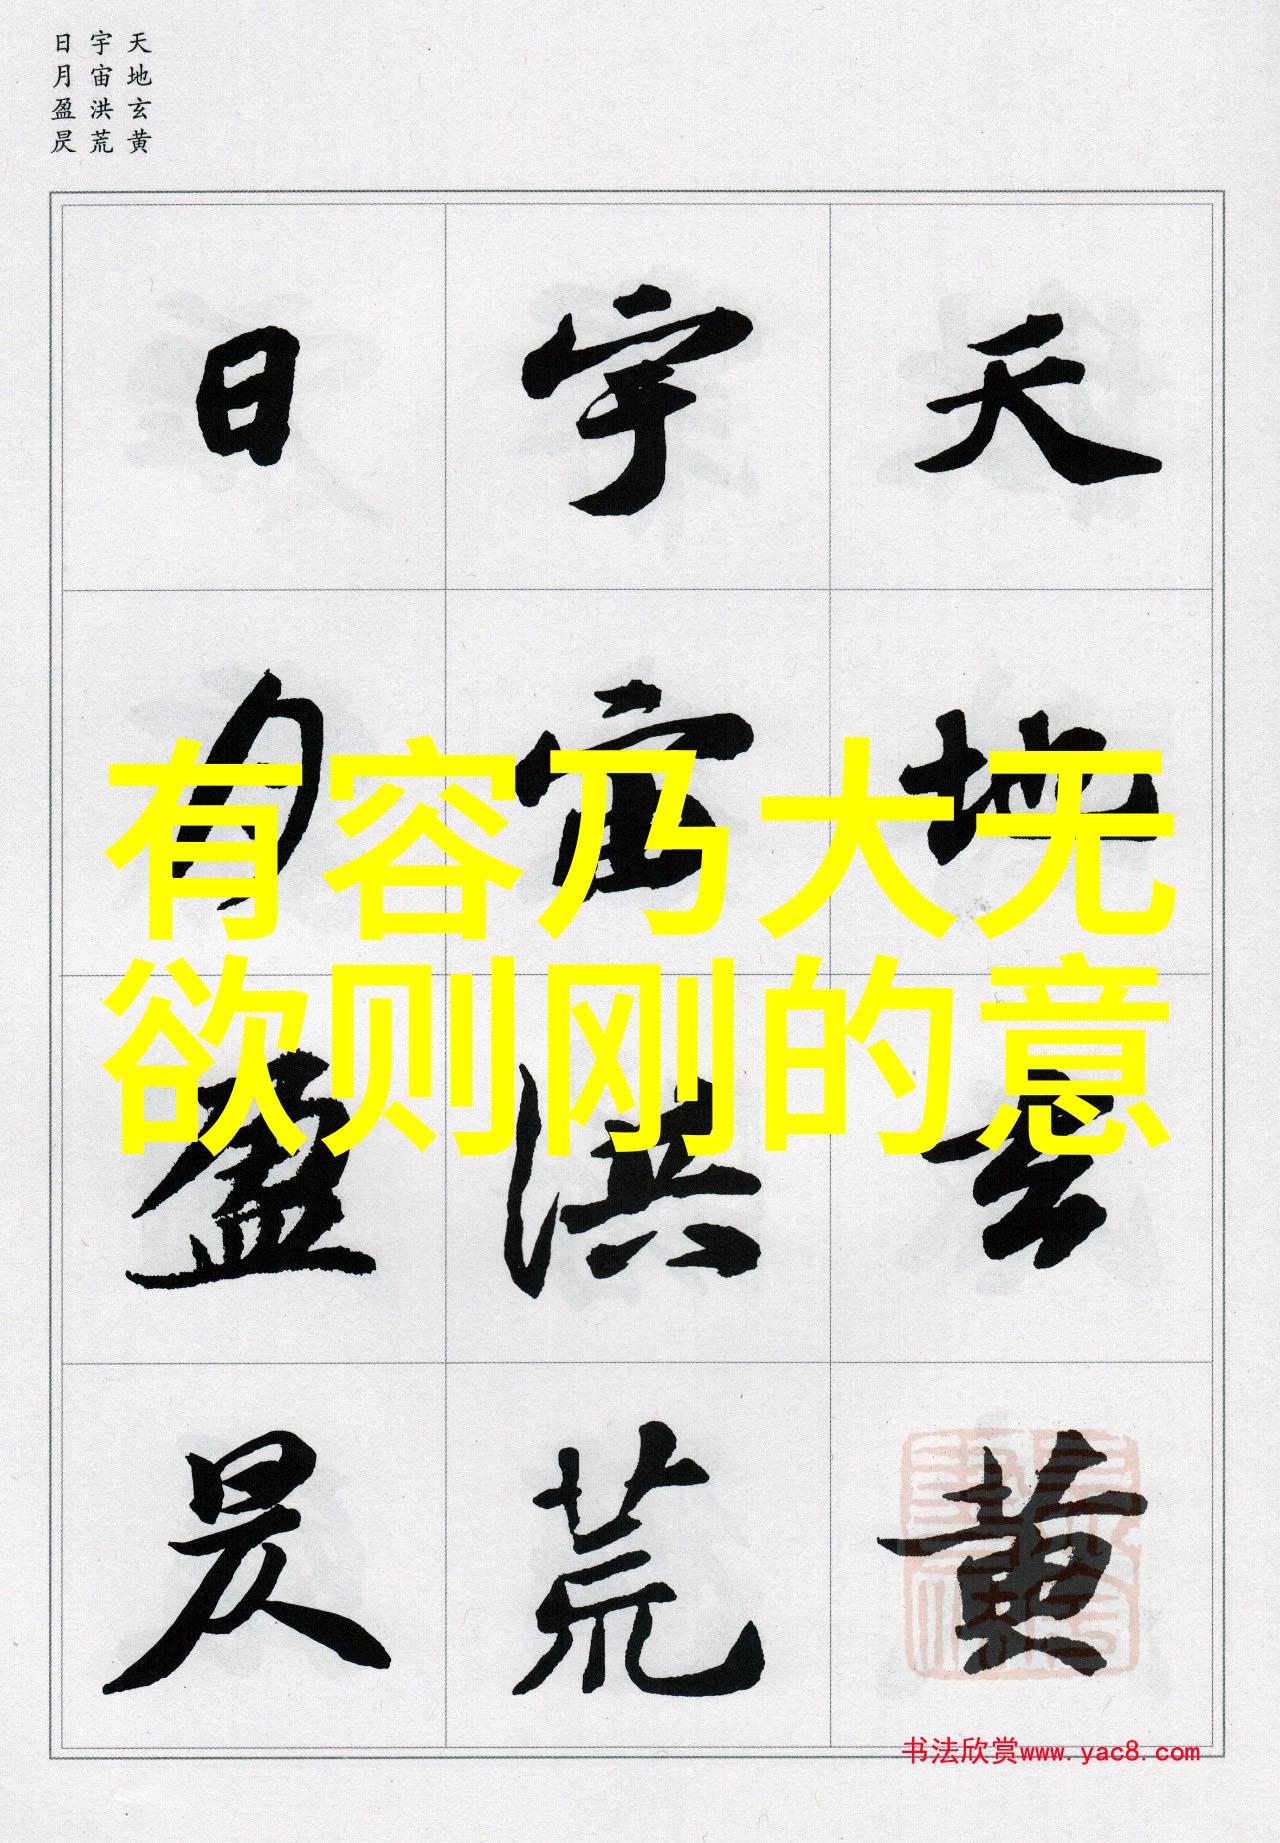 天地玄黄
宇宙洪荒
日月盈昃
天地玄黄
宇宙洪荒
日月盈昃
有容乃大无
欲则刚的意
书法欣赏www.yac8.com